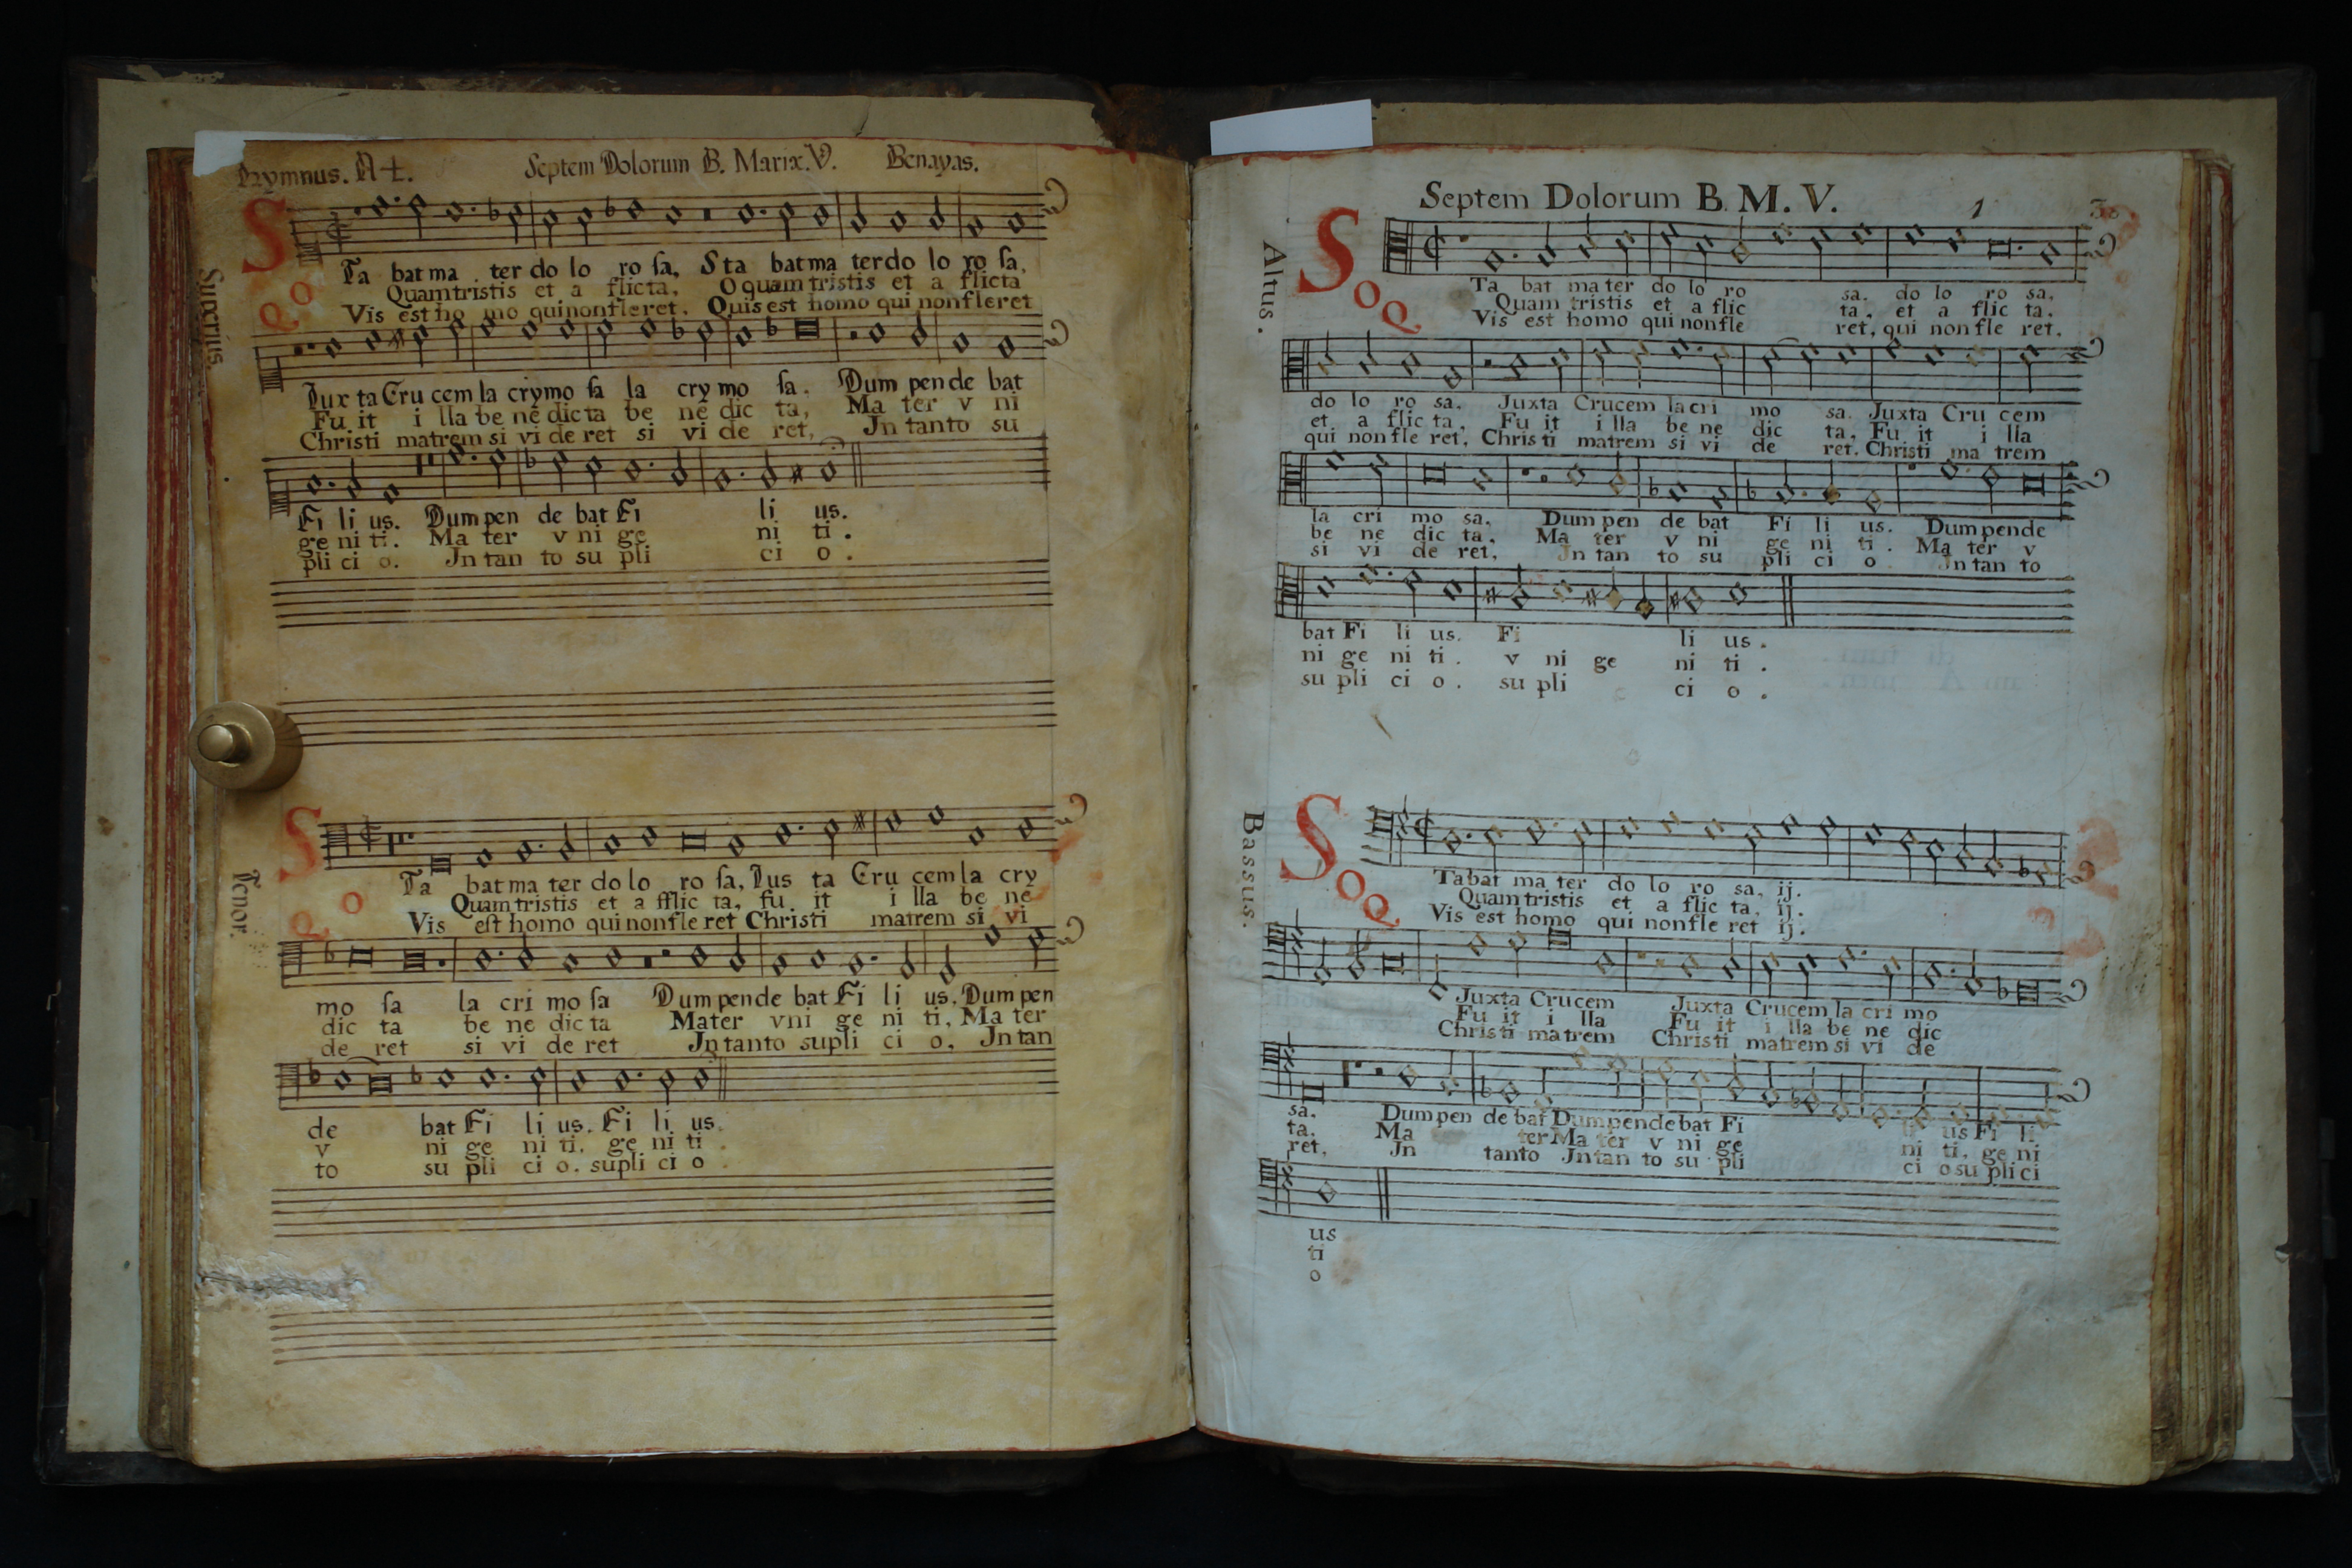 Hymnus. A 4. Septem Dolorum B. Mariæ. V. Benayas.
Superius.
S
Ta bat ma ter do lo ro ſa, Sta bat ma ter do lo ro ſa,
O Quam tristis et a flicta, O quam tristis et a flicta
Q Vis est ho mo qui non fleret, Quis est homo qui non fleret
Jux ta Cru cem la crymo ſa la cry mo ſa. Dum pen de bat
Fu it i lla be ne dic ta be ne dic ta, Ma ter v ni
Christi matrem si vi de ret si vi de ret, Jn tanto su
Fi li us. Dum pen de bat Fi li us.
ge ni ti. Ma ter v ni ge ni ti.
pli ci o. Jn tan to su pli ci o.
Tenor.
S
Ta bat ma ter do lo ro ſa, Jus ta Cru cem la cry
O Quam tristis et a fflic ta, fu it i lla be ne
Q Vis est homo qui non fle ret Christi matrem si vi
mo ſa la cri mo ſa Dum pende bat Fi li us. Dum pen
dic ta be ne dic ta Mater vni ge ni ti, Ma ter
de ret si vi de ret Jn tanto supli ci o, Jn tan
de bat Fi li us. Fi li us.
v ni ge ni ti. ge ni ti.
to su pli ci o. supli ci o.
Septem Dolorum B. M. V. 1
Altus.
S
Ta bat ma ter do lo ro sa. do lo ro sa,
O Quam tristis et a flic ta, et a flic ta.
Q Vis est homo qui non fle ret, qui non fle ret.
do lo ro sa. Juxta Crucem la cri mo sa. Juxta Cru cem
et a flic ta, Fu it i lla be ne dic ta, Fu it i lla
qui non fle ret, Chris ti matrem si vi de ret. Christi ma trem
la cri mo sa. Dum pen de bat Fi li us. Dum pende
be ne dic ta, Ma ter v ni ge ni ti. Ma ter v
si vi de ret, Jn tan to su pli ci o Jn tan to
bat Fi li us. Fi li us.
ni ge ni ti. v ni ge ni ti.
su pli ci o. su pli ci o.
Bassus.
S
Ta bat ma ter do lo ro sa, ij.
O Quam tristis et a flic ta, ij.
Q Vis est homo qui non fle ret ij.
Juxta Crucem Juxta Crucem la cri mo
Fu it i lla Fu it i lla be ne dic
Christi matrem Christi matrem si vi de
sa. Dum pen de bat Dum pendebat Fi us Fi li
ta. Ma ter Ma ter v ni ge ni ti. ge ni
ret, Jn tanto Jn tan to su pli ci o su pli ci
us
ti
o